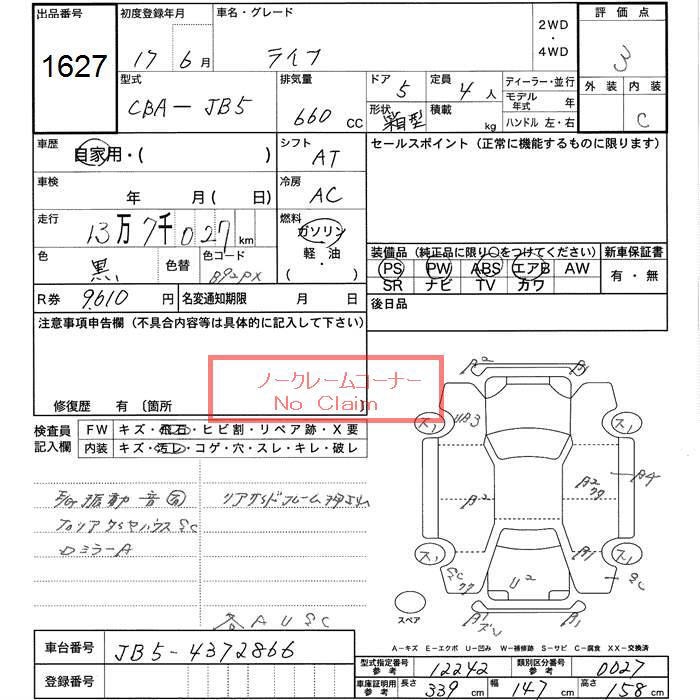 出品番号 初度登録年月 車名・グレード 2WD ・ 4WD 評価点
1627 17 6月 ライフ 3
型式 排気量 ドア 定員 ディーラー・並行 外装 内装
CBA-JB5 660 CC 5 4人 モデル年式 年 C
形状 箱型 積載 kg ハンドル 左・右
車歴 自家用・( ) シフト AT セールスポイント (正常に機能するものに限ります)
車検 年 月(日) 冷房 AC
走行 13万7千027km 燃料 ガソリン・軽・油( )
色 黒 色替 色コード B92PX
装備品 (純正品に限り○をつけてください) 新車保証書
PS PW ABS エアB AW 有・無
SR ナビ TV カワ
R券 9610円 名変通知期限 月 日 後日品
注意事項申告欄 (不具合内容等は具体的に記入して下さい)
ノークレームコーナー
No Claim
修復歴 有 〔箇所 〕
検査員記入欄 FW キズ・飛石・ヒビ割・リペア跡・X要
内装 キズ・汚レ・コゲ・穴・スレ・キレ・破レ
ミラーA
A U S C
A2
スノ UB3 スノ
A2 A4
スノ A1 スノ
U2 SC
スペア
A1
A-キズ E-エクボ U-凹み W-補修跡 S-サビ C-腐食 XX-交換済
車台番号 JB5-4372866
登録番号
型式指定番号 参考 12242 類別区分番号 参考 0027
車庫証明用 参考 長さ 339cm 幅 147cm 高さ 158cm